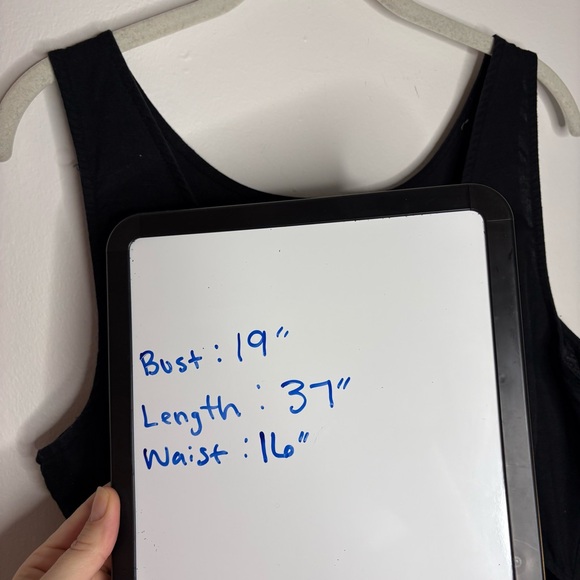 Bust : 19"
Length : 37"
Waist : 16"